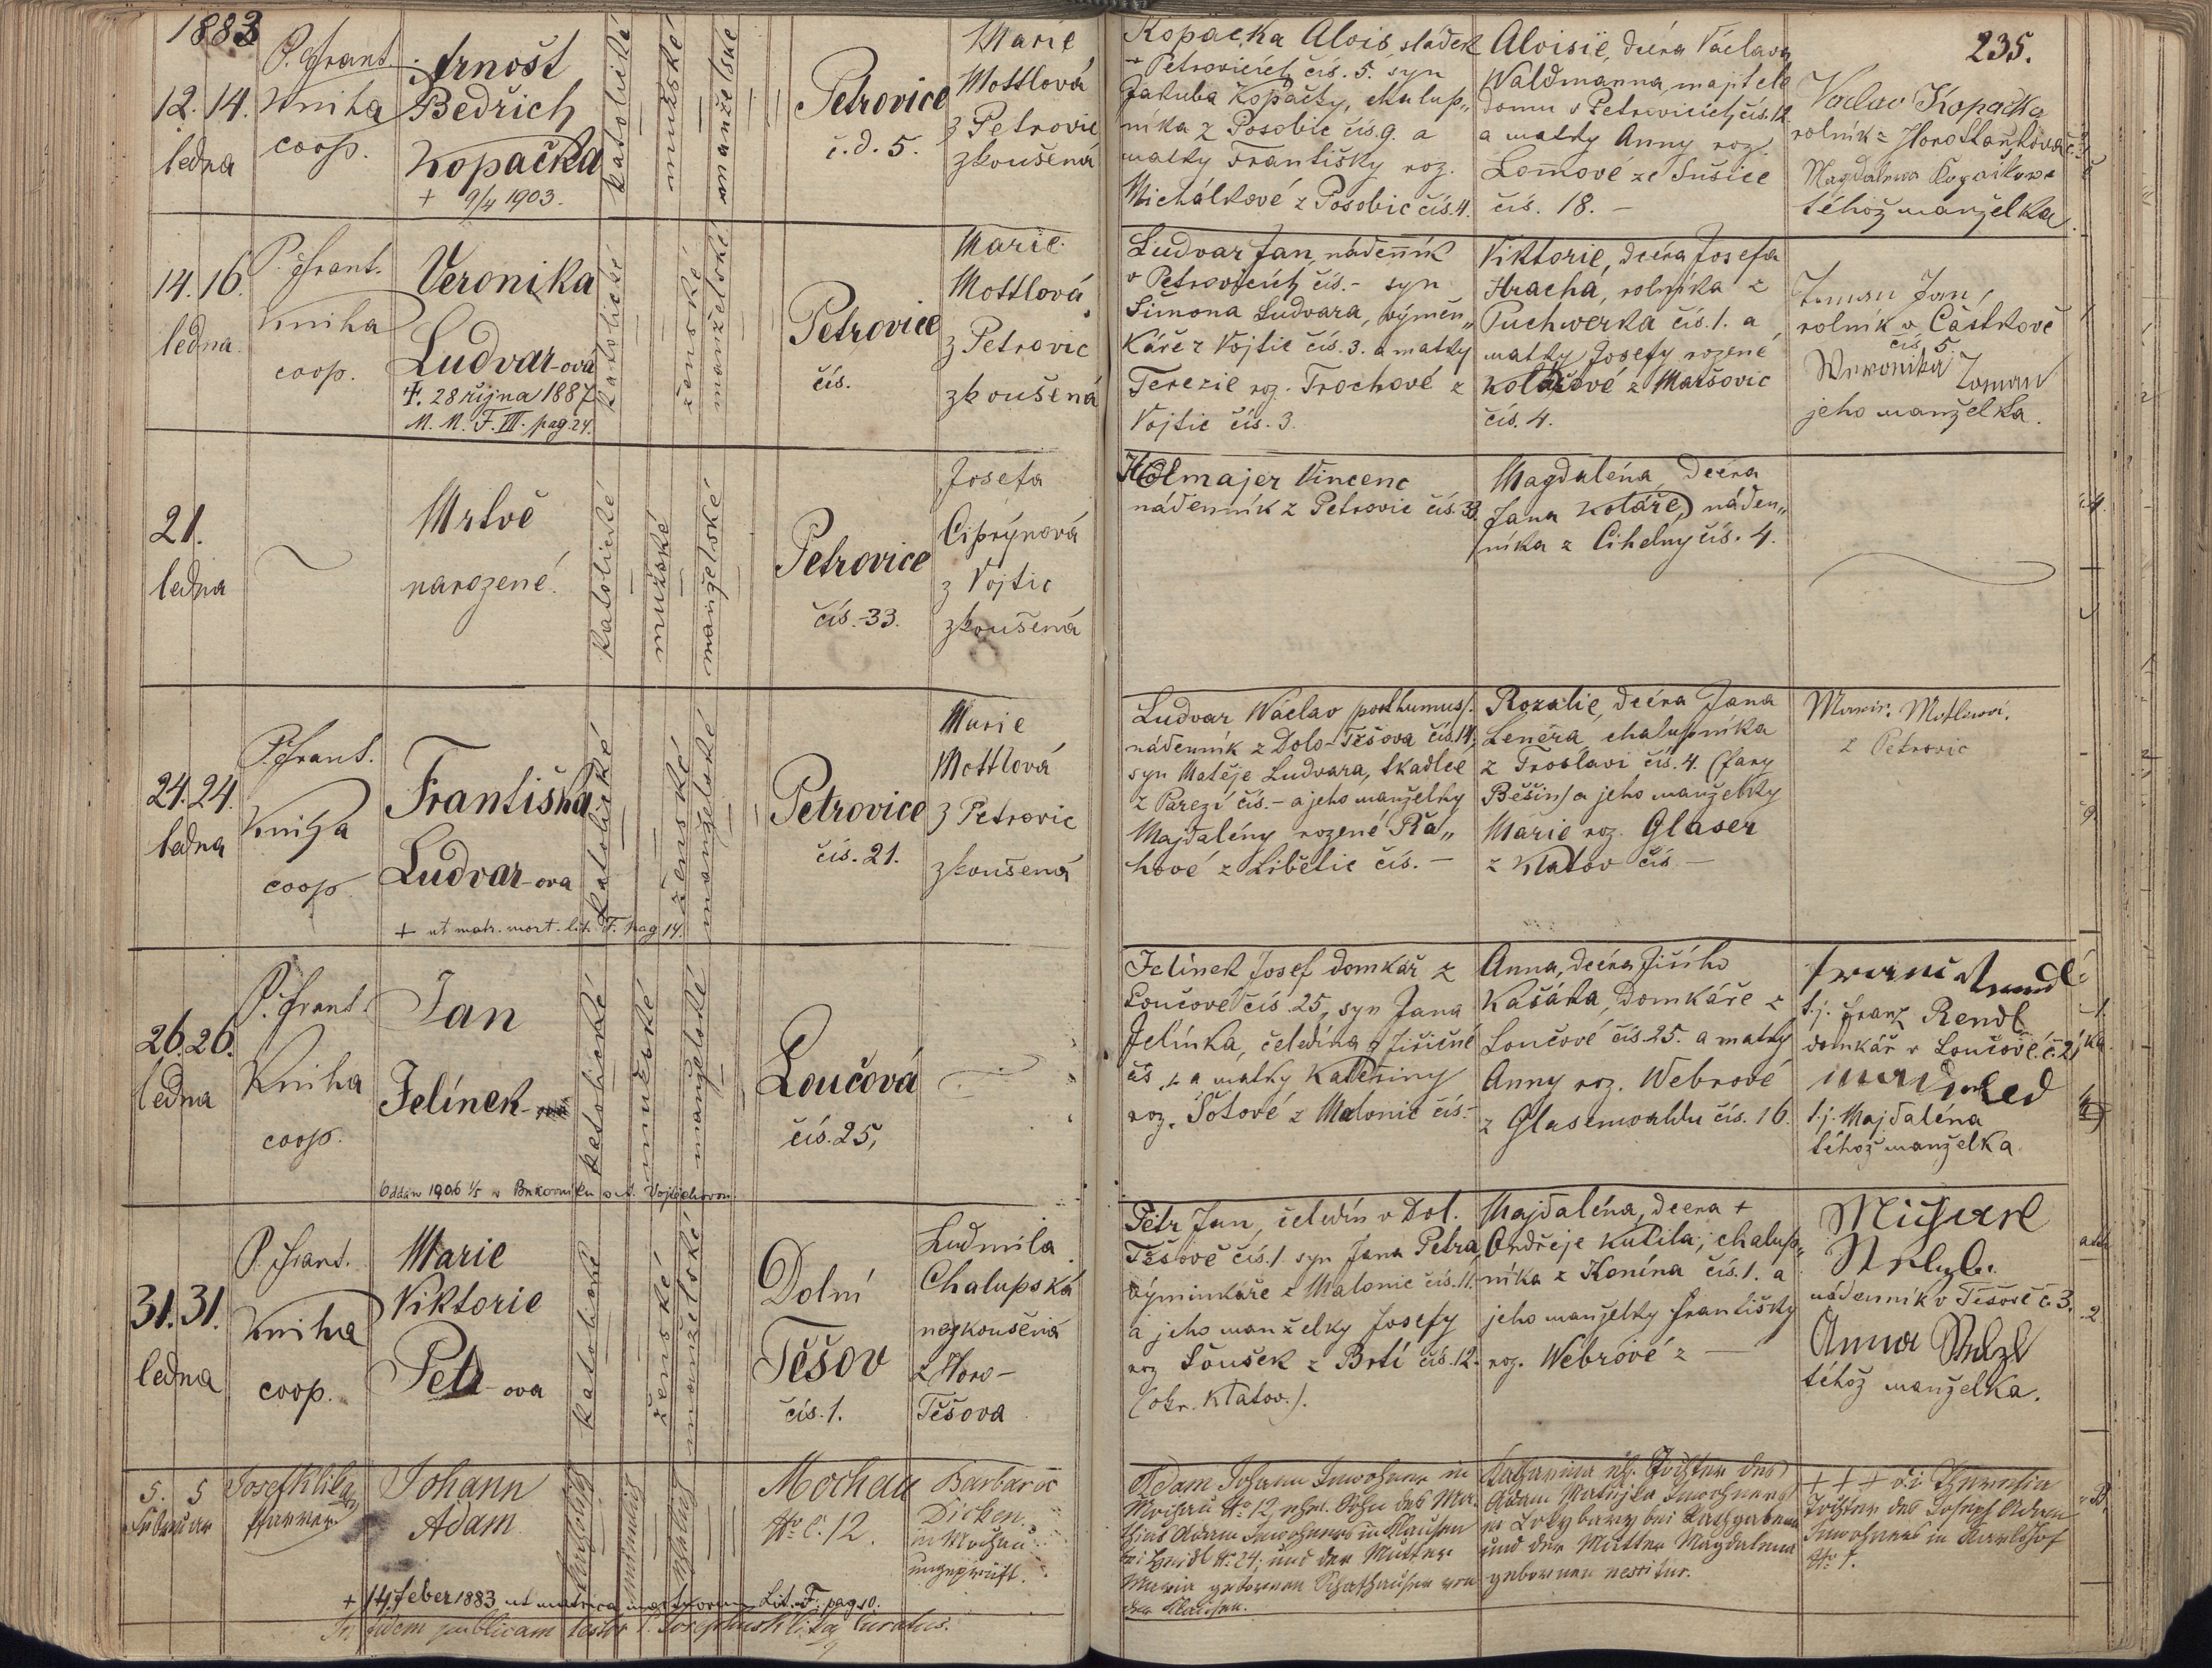 1883
235.
12. 14.
ledna
P. Frant.
Kniha
coop.
Arnošt
Bedřich
Kopačka
+ 9/4 1903.
katolické
mužské
manželské
Petrovice
č. d. 5.
Marie
Mottlová
z Petrovic
zkoušená
Kopačka Alois, sládek
v Petrovicích čís. 5. syn
Jakuba Kopačky, chalup„
níka z Posobic čís. 9. a
matky Františky roz.
Michálkové z Posobic čís. 4.
Aloisie, dcéra Václava
Waldmanna, majitele
domu v Petrovicích čís. 12.
a matky Anny roz.
Lomové ze Sušice
čís. 18. –
Václav Kopačka
rolník z
Magdalena Kopačkova
téhož manželka.
14. 16.
ledna.
P. Frant.
Kniha
coop.
Veronika
Ludvar-ova
+. 28 října 1887
M. M. F. III. pag. 24.
katolické
ženské
manželské
Petrovice
čís.
Marie
Mottlová
z Petrovic
zkoušená
Ludvar Jan, nádenník
v Petrovicích čís. – syn
Šimona Ludvara, výměn„
káře z Vojtic čís. 3. a matky
Terezie roz. Trochové z
Vojtic čís. 3.
Viktorie, dcéra Josefa
Hracha, rolníka z
Puchwerka čís. 1. a
matky Josefy rozené
Kolářové z Maršovic
čís. 4.
Zoman Jan,
rolník v Částkově
čís. 5
Weronika Zoman
jeho manželka.
21.
ledna
Mrtvě
narozené.
katolické
mužské
manželské
Petrovice
čís. 33.
Josefa
Ciprýnová
z Vojtic
zkoušená
Holmajer Vincenc
nádenník z Petrovic čís. 33.
Magdaléna, dcéra
Jana Koláře, náden„
níka z Cihelny čís. 4.
24. 24.
ledna
P. Frant.
Kniha
coop.
Františka
Ludvar-ova
+ ut matr. mort. lit. F. pag 14.
katolické
ženské
manželské
Petrovice
čís. 21.
Marie
Mottlová
z Petrovic
zkoušená
Ludvar Václav posthumus/.
nádenník z Dolo-Těšova čís. 14,
syn Matěje Ludvara, tkadlce
z Parezí čís. – a jeho manželky
Majdalény rozené Řá„
hové z Libětic čís. –
Rozalie, dcéra Jana
Lenčra, chalupníka
z Troslavi čís. 4. (fary
Běšiny) a jeho manželky
Marie roz. Glaser
z Klatov čís. –
Marie Motlová.
z Petrovic
26. 26.
ledna
P. Frant.
Kniha
coop.
Jan
Jelínek
Oddán 1906 1/5 v
katolické
mužské
manželské
Loučová
čís. 25,
Jelínek Josef domkář z
Loučové čís. 25, syn Jana
Jelínka, čeledína z Jiřičné
čís. – a matky Kateřiny
roz. Šotové z Malonic čís. –
Anna, dcéra Jiřího
Kašáka, domkáře z
Loučové čís. 25. a matky
Anny roz. Webrové
z Glasenwaldu čís. 16.
t. j. Franz Rendl
domkář v Loučové č. 21
t. j. Majdaléna
téhož manželka.
31. 31.
ledna
P. Frant.
Kniha
coop.
Marie
Viktorie
Petr-ova
katolické
ženské
manželské
Dolní
Těšov
čís. 1.
Ludmila
Chalupská
nezkoušená
z Horo-
Těšova
Petr Jan, čeledín v Dol.
Těšově čís. 1. syn Jana Petra,
výminkáře z Malonic čís. 11.
a jeho manželky Josefy
roz Soušek z Brtí čís. 12.
(okr. Klatov.).
Majdaléna, dcera +
Ondřeje Kutila, chalup„
níka z Konína čís. 1. a
jeho manželky Františky
roz. Webrové z –
Michael
nádenník v Těšově č. 3.
Anna
téhož manželka.
5. 5
Februar
Josef Klika
Pfarrer
Johann
Adam
katholisch
männlich
ehelich
Mochau
No C. 12.
Barbara
Dicken
in Mochau
ungeprüft.
Adam Johann Inwohner in
Mochau No 12, ehel. Sohn des Ma-
thias Adam Inwohners in Klausen
No 24, und der Mutter
Maria gebornen von
der Klausen.
Katharina ehl. Tochter des
Adam Matejka Inwohners
in bei
und der Mutter Magdalena
gebornen nescitur.
+ + + d. i. Theresia
Tochter des Joseph Adam
Inwohners in Karlshof
No 7.
+ 14 feber 1883 ut matrica mortuorum Lit. F. pag. 10.
In fidem publicam testor P. Josephus Klika Curatus.